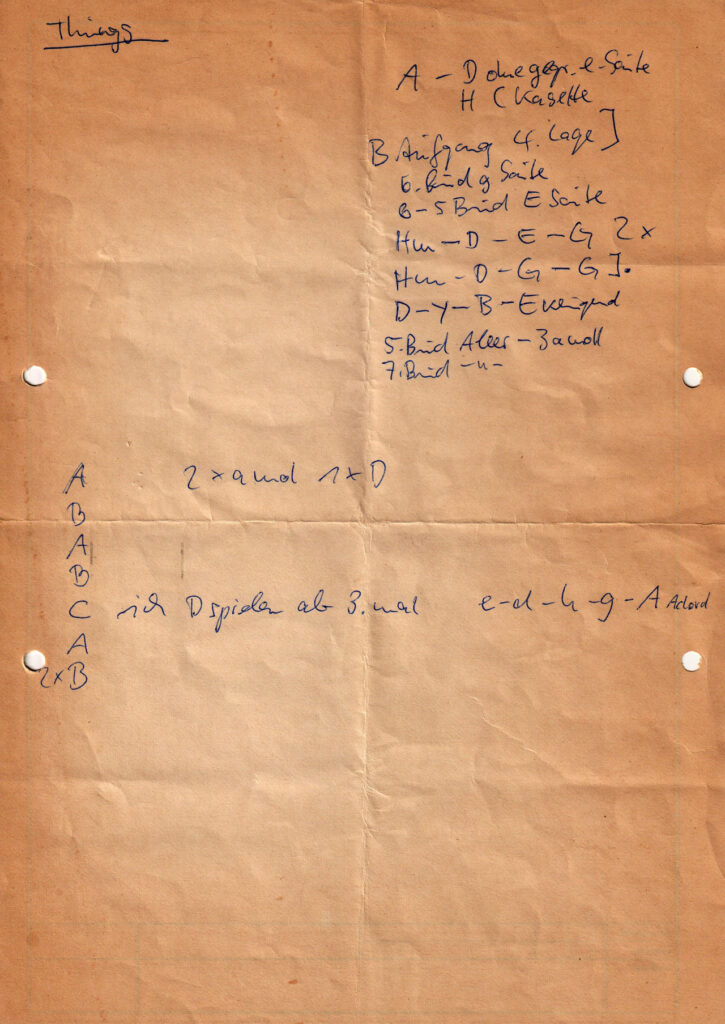 Things
A – D ohne gegr. e-Saite
H C Kasette
B. Aufgang 4. Lage ]
6. Bund g Saite
6 – 5 Bund E Saite
Hm – D – E – G 2x
Hm – D – G – G ].
D – Y – B – E
5. Bund A leer – 3 a moll
7. Bund – " –
A 2 x a und 1 x D
B
A
B
C ich D spielen ab 3. mal e – d – h – g – A Ackord
A
2xB